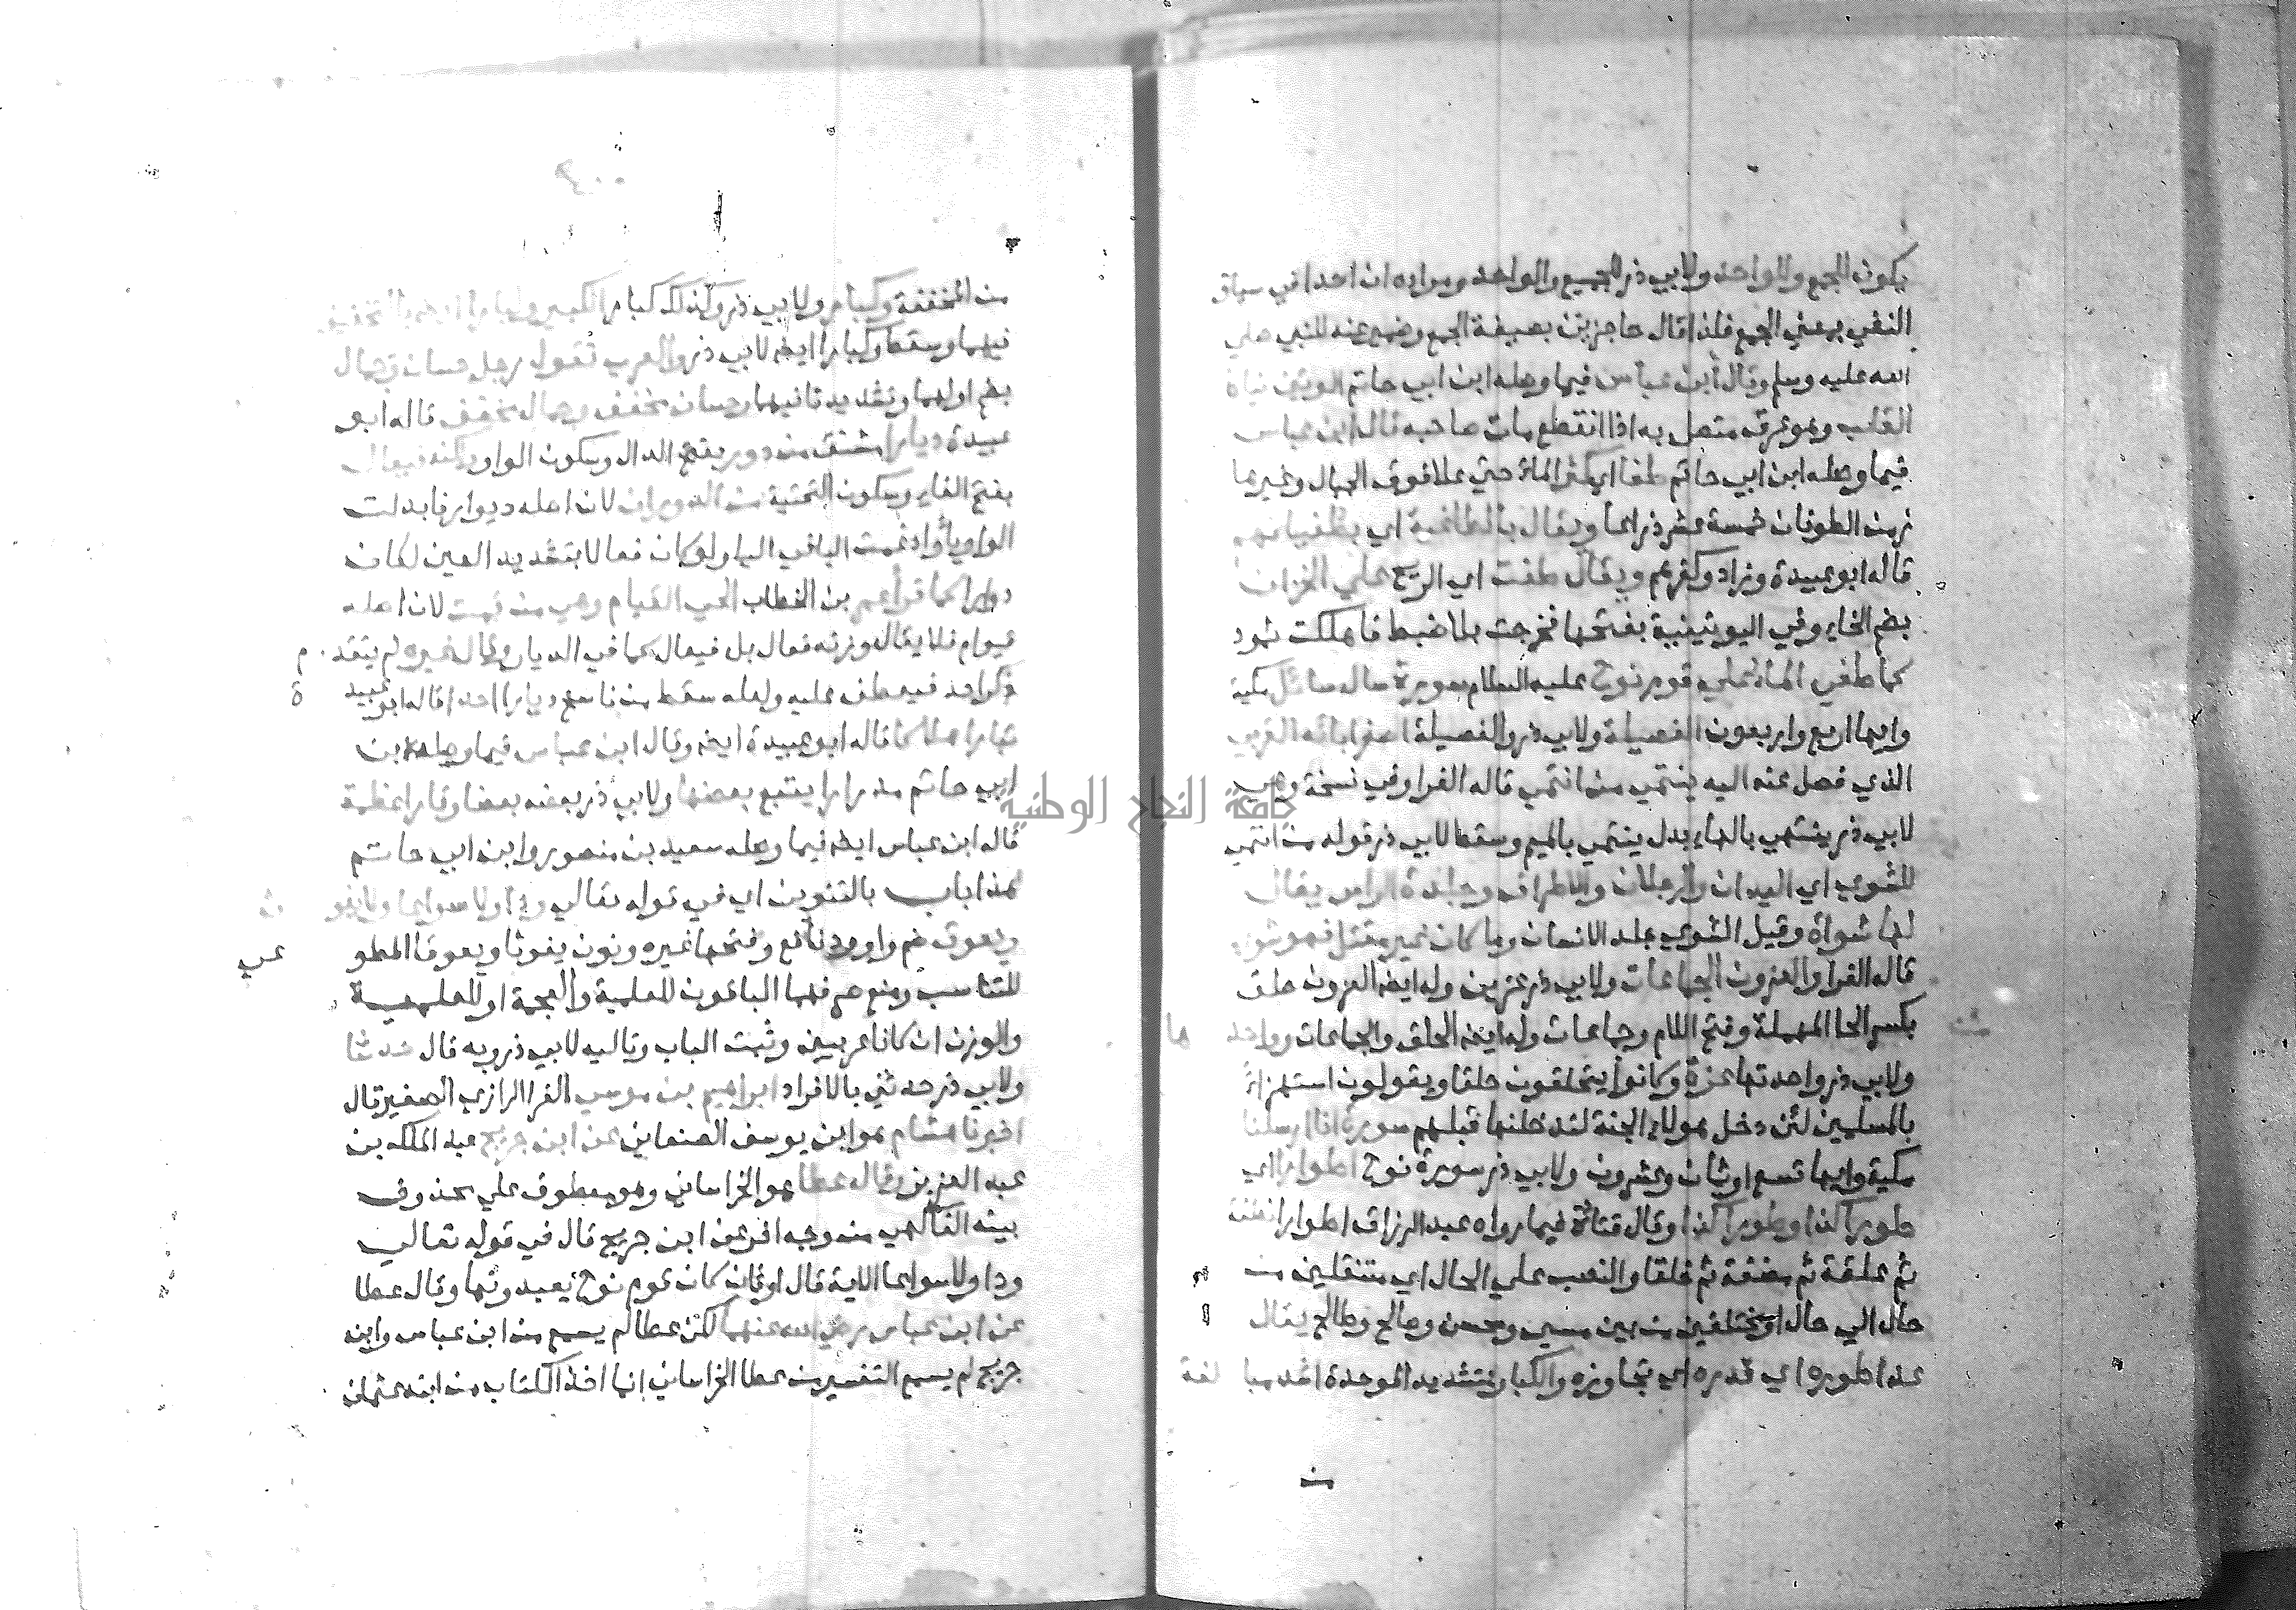 يكون للجمع وللواحد ولابي ذر للجميع والواحد ومراده ان احدا في سياق
النفي بمعني الجمع فلذا قال حاجزين بصيغة الجمع وضمير عنه للنبي صلي
الله عليه وسلم وقال ابن عباس فيما وصله ابن ابي حاتم الوتين نياط
القلب وهو عرق متصل به اذا انقطع مات صاحبه قال ابن عباس
فيما وصله ابن ابي حاتم طغا اي كثر الماء حتي علا فوق الجبال وغيرها
زمن الطوفان خمسة عشر ذراعا ويقال بالطاغية اي بطغيانهم
قاله ابو عبيدة وزاد وكفرهم ويقال طغت اي الريح علي الخزان
بضم الخاء وفي اليونينية بفتحها فخرجت بلا ضبط فاهلكت ثمود
كما طغي الماء علي قوم نوح عليه السلام سورة سال سائل مكية
وايها اربع واربعون الفصيلة ولابي ذر والفصيلة اصغر ابائه القربي
الذي فصل عنه اليه ينتمي من انتمي قاله الفرا وفي نسخة وهي
لابي ذر ينتهي بالهاء بدل ينتمي بالميم وسقط لابي ذر قوله من انتمي
للشوي اي اليدان والرجلان والاطراف وجلدة الراس يقال
لها شواة وقيل الشوي جلد الانسان وما كان غير مقتل فهو شوي
قاله الفرا والعزون الجماعات ولابي ذر عزين وله ايضا العزون حلق
بكسر الحا المهملة وفتح اللام وجماعات وله ايضا الحلق والجماعات وواحدها
ولابي ذر واحدتها عزة وكانوا يتحلقون حلقا ويقولون استهزاء
بالمسلمين لئن دخل هولاء الجنة لندخلنها قبلهم سورة انا ارسلنا
مكية وايها تسع او ثمان وعشرون ولابي ذر سورة نوح اطوارا اي
طورا كذا وطورا كذا وقال قتادة فيما رواه عبد الرزاق اطوارا نطفة
ثم علقة ثم مضغة ثم خلقا والنصب علي الحال اي متنقلين من
حال الي حال او مختلفين من بين مسيي ومحسن وصالح وطالح يقال
عدا طوره اي قدره اي تجاوزه والكبار بتشديد الموحدة اشد مبالغة
من
من المخففة وكبار ولابي ذر وكذلك كبار الكبير وكبارا
فيهما وسقط وكبارا ايضا لابي ذر والعرب تقول رجل حسان وجمال
بضم اولهما وتشديد ثانيهما وحسان مخفف وجمال مخفف قاله ابو
عبيدة ديارا مشتق من دور بفتح الدال وسكون الواو ولكنه فيعال
بفتح الفاء وسكون التحتية من الدوران لان اصله ديوار فابدلت
الواو ياء وادغمت اليا في اليا ولو كان فعالا بتشديد العين لكان
دوارا كما قرأ عمر بن الخطاب الحي القيام وهي من قمت لان اصله
قيوام فلا يقال وزنه فعال بل فيعال كما في الديار وقال غيره لم يتقدم
ذكر احد فيعطف عليه ولعله سقط من ناسخ ديارا احدا قاله ابو عبيدة
تبارا هلاكا قاله ابو عبيدة ايضا وقال ابن عباس فيما وصله ابن
ابي حاتم مدرارا يتبع بعضها ولابي ذر بعضه بعضا وقارا عظمة
قاله ابن عباس ايضا فيما وصله سعيد بن منصور وابن ابي حاتم
هذا باب بالتنوين اي في قوله تعالي ودا ولا سواعا ولا يغوث
ويعوق ضم واو ودا نافع وفتحها غيره ونون يغوثا ويعوقا المطوعي
للتناسب ومنع صرفهما الباقون للعلمية والعجمة او للعلمية
والوزن ان كانا عربيين وثبت الباب وتاليه لابي ذر وبه قال حدثنا
ولابي ذر حدثني بالافراد ابراهيم بن موسي الفرا الرازي الصغير قال
اخبرنا هشام هو ابن يوسف الصنعاني عن ابن جريج عبد الملك بن
عبد العزيز وقال عطا هو الخراساني وهو معطوف علي محذوف
بينه الفاكهي من وجه اخر عن ابن جريج قال في قوله تعالي
ودا ولا سواعا الاية قال اوثان كان قوم نوح يعبدونها وقال عطا
عن ابن عباس رضي الله عنهما لكن عطا لم يسمع من ابن عباس وابن
جريج لم يسمع التفسير من عطا الخراساني انما اخذ الكتاب من ابنه عثمان
جامعة النجاح الوطنية